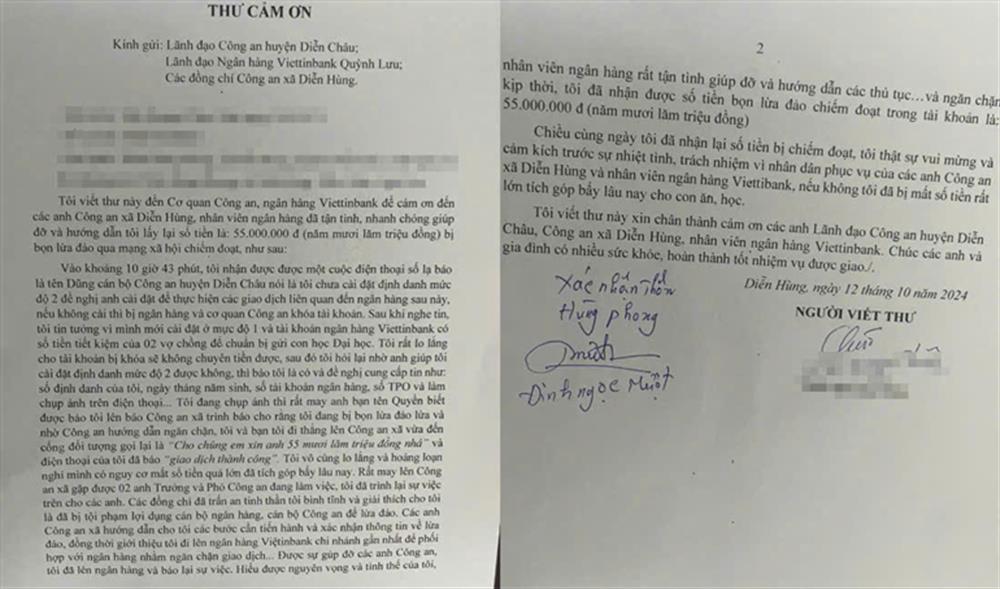 THƯ CẢM ƠN
Kính gửi: Lãnh đạo Công an huyện Diễn Châu;
Lãnh đạo Ngân hàng Viettinbank Quỳnh Lưu;
Các đồng chí Công an xã Diễn Hùng.
Tôi viết thư này đến Cơ quan Công an, ngân hàng Viettinbank để cảm ơn đến
các anh Công an xã Diễn Hùng, nhân viên ngân hàng đã tận tình, nhanh chóng giúp
đỡ và hướng dẫn tôi lấy lại số tiền là: 55.000.000 đ (năm mươi lăm triệu đồng) bị
bọn lừa đảo qua mạng xã hội chiếm đoạt, như sau:
Vào khoảng 10 giờ 43 phút, tôi nhận được được một cuộc điện thoại số lạ báo
là tên Dũng cán bộ Công an huyện Diễn Châu nói là tôi chưa cài đặt định danh mức
độ 2 đề nghị anh cài đặt để thực hiện các giao dịch liên quan đến ngân hàng sau này,
nếu không cài thì bị ngân hàng và cơ quan Công an khóa tài khoản. Sau khi nghe tin,
tôi tin tưởng vì mình mới cài đặt ở mực độ 1 và tài khoản ngân hàng Viettinbank có
số tiền tiết kiệm của 02 vợ chồng để chuẩn bị gửi con học Đại học. Tôi rất lo lắng
cho tài khoản bị khóa sẽ không chuyên tiền được, sau đó tôi hỏi lại nhờ anh giúp tôi
cài đặt định danh mức độ 2 được không, thì báo tôi là có và đề nghị cung cấp tin như:
số định danh của tôi, ngày tháng năm sinh, số tài khoản ngân hàng, số TPO và làm
chụp ảnh trên điện thoại... Tôi đang chụp ảnh thì rất may anh bạn tên Quyền biết
được báo tôi lên báo Công an xã trình báo cho rằng tôi đang bị bọn lừa đảo lừa và
nhờ Công an hướng dẫn ngăn chặn, tôi và bạn tôi đi thẳng lên Công an xã vừa đến
cổng đối tượng gọi lại là "Cho chúng em xin anh 55 mươi lăm triệu đồng nhá" và
điện thoại của tôi đã báo "giao dịch thành công". Tôi vô cùng lo lắng và hoảng loạn
nghĩ mình có nguy cơ mất số tiền quá lớn đã tích góp bấy lâu nay. Rất may lên Công
an xã gặp được 02 anh Trưởng và Phó Công an đang làm việc, tôi đã trình lại sự việc
trên cho các anh. Các đồng chí đã trấn an tinh thần tôi bình tĩnh và giải thích cho tôi
là đã bị tội phạm lợi dụng cán bộ ngân hàng, cán bộ Công an để lừa đảo. Các anh
Công an xã hướng dẫn cho tôi các bước cần tiến hành và xác nhận thông tin về lừa
đảo, đồng thời giới thiệu tôi đi lên ngân hàng Việtinbank chi nhánh gần nhất để phối
hợp với ngân hàng nhằm ngăn chặn giao dịch... Được sự giúp đỡ các anh Công an,
tôi đã lên ngân hàng và báo lại sự việc. Hiểu được nguyện vọng và tình thế của tôi,
2
nhân viên ngân hàng rất tận tình giúp đỡ và hướng dẫn các thủ tục…và ngăn chặn
kịp thời, tôi đã nhận được số tiền bọn lừa đảo chiếm đoạt trong tài khoản là:
55.000.000 đ (năm mươi lăm triệu đồng)
Chiều cùng ngày tôi đã nhận lại số tiền bị chiếm đoạt, tôi thật sự vui mừng và
cảm kích trước sự nhiệt tình, trách nhiệm vì nhân dân phục vụ của các anh Công an
xã Diễn Hùng và nhân viên ngân hàng Viettibank, nếu không tôi đã bị mất số tiền rất
lớn tích góp bấy lâu nay cho con ăn, học.
Tôi viết thư này xin chân thành cảm ơn các anh Lãnh đạo Công an huyện Diễn
Châu, Công an xã Diễn Hùng, nhân viên ngân hàng Viettinbank. Chúc các anh và
gia đình có nhiều sức khỏe, hoàn thành tốt nhiệm vụ được giao./.
Diễn Hùng, ngày 12 tháng 10 năm 2024
NGƯỜI VIẾT THƯ
Xác nhận thôn
Hùng phong
Đinh ngọc Mượt